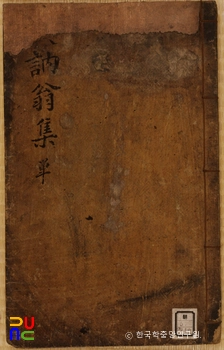 訥翁集 單
© 한국학중앙연구원